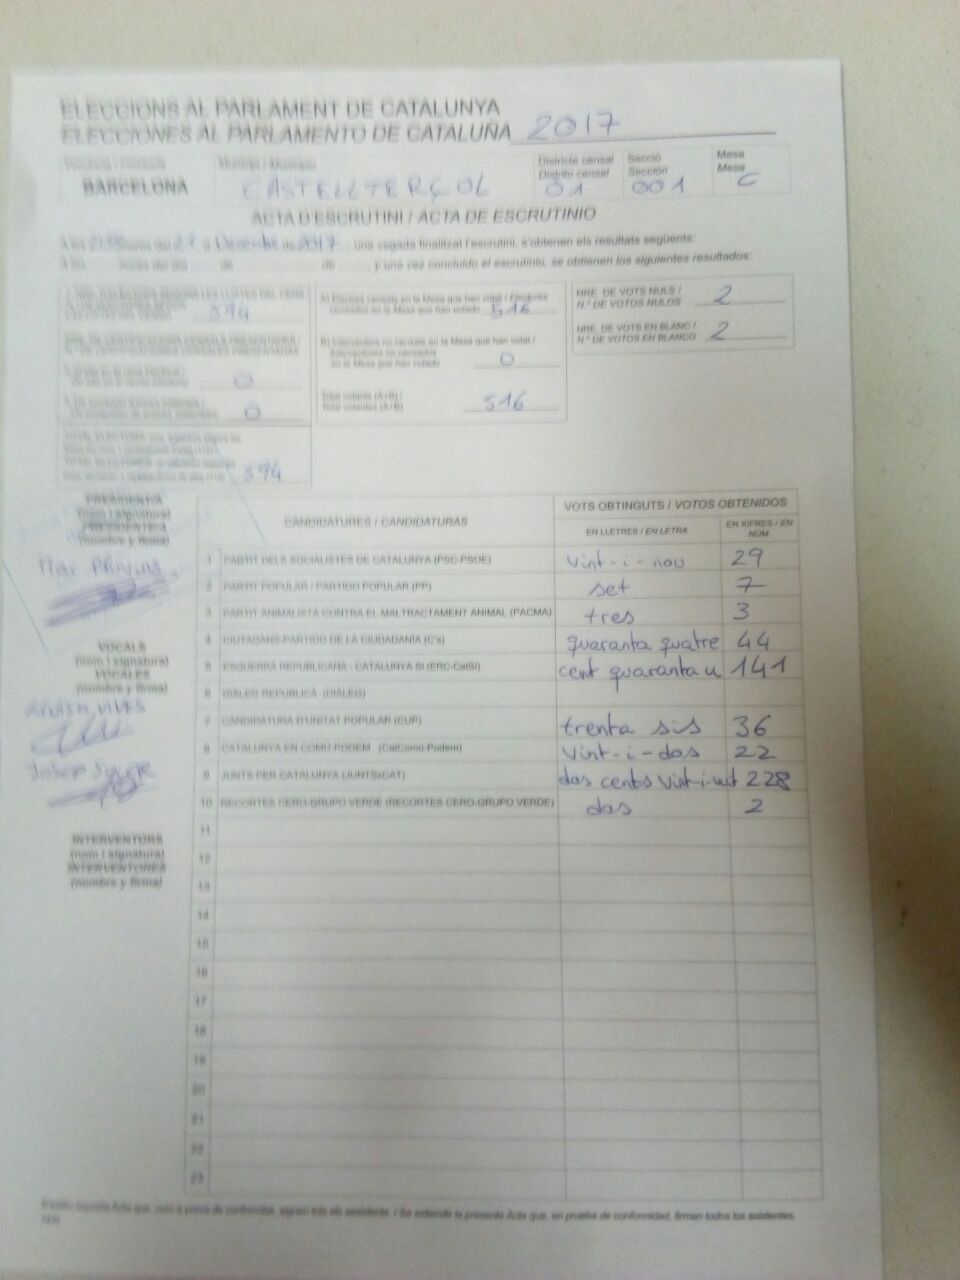 ELECCIONS AL PARLAMENT DE CATALUNYA
ELECCIONES AL PARLAMENTO DE CATALUÑA 2017
Província / Provincia Municipi / Municipio Districte censal Secció Mesa
BARCELONA CASTELLTERÇOL Distrito censal 01 Sección 001 Mesa C
ACTA D'ESCRUTINI / ACTA DE ESCRUTINIO
A les hores del 21 d Desembre de 2017, una vegada finalitzat l'escrutini, s'obtenen els resultats següents:
A las horas del día de de , y una vez concluido el escrutinio, se obtienen los siguientes resultados:
594
0
0
594
A) Electors censats en la Mesa que han votat / Electores
censados en la Mesa que han votado 516
B) Interventors no censats en la Mesa que han votat /
Interventores no censados
en la Mesa que han votado 0
Total votants (A+B) /
Total votantes (A+B) 516
NRE. DE VOTS NULS /
N.º DE VOTOS NULOS 2
NRE. DE VOTS EN BLANC /
N.º DE VOTOS EN BLANCO 2
PRESIDENT/A
(nom i signatura)
PRESIDENTE/A
(nombre y firma)
VOCALS
(nom i signatura)
VOCALES
(nombre y firma)
INTERVENTORS
(nom i signatura)
INTERVENTORES
(nombre y firma)
CANDIDATURES / CANDIDATURAS VOTS OBTINGUTS / VOTOS OBTENIDOS
EN LLETRES / EN LETRA EN XIFRES / EN NUM
1 PARTIT DELS SOCIALISTES DE CATALUNYA (PSC-PSOE) vint-i-nou 29
2 PARTIT POPULAR / PARTIDO POPULAR (PP) set 7
3 PARTIT ANIMALISTA CONTRA EL MALTRACTAMENT ANIMAL (PACMA) tres 3
4 CIUTADANS-PARTIDO DE LA CIUDADANÍA (C's) quaranta quatre 44
5 ESQUERRA REPUBLICANA - CATALUNYA SÍ (ERC-CatSí) cent quaranta u 141
6 DIÀLEG REPUBLICÀ (DIÀLEG)
7 CANDIDATURA D'UNITAT POPULAR (CUP) trenta sis 36
8 CATALUNYA EN COMÚ-PODEM (CatComú-Podem) vint-i-dos 22
9 JUNTS PER CATALUNYA (JUNTSxCAT) dos cents vint-i-vuit 228
10 RECORTES CERO-GRUPO VERDE (RECORTES CERO-GRUPO VERDE) dos 2
11
12
13
14
15
16
17
18
19
20
21
22
23
aquesta Acta que, com a prova de conformitat, signen tots els assistents. / Se extiende la presente Acta que, en prueba de conformidad, firman todos los asistentes.